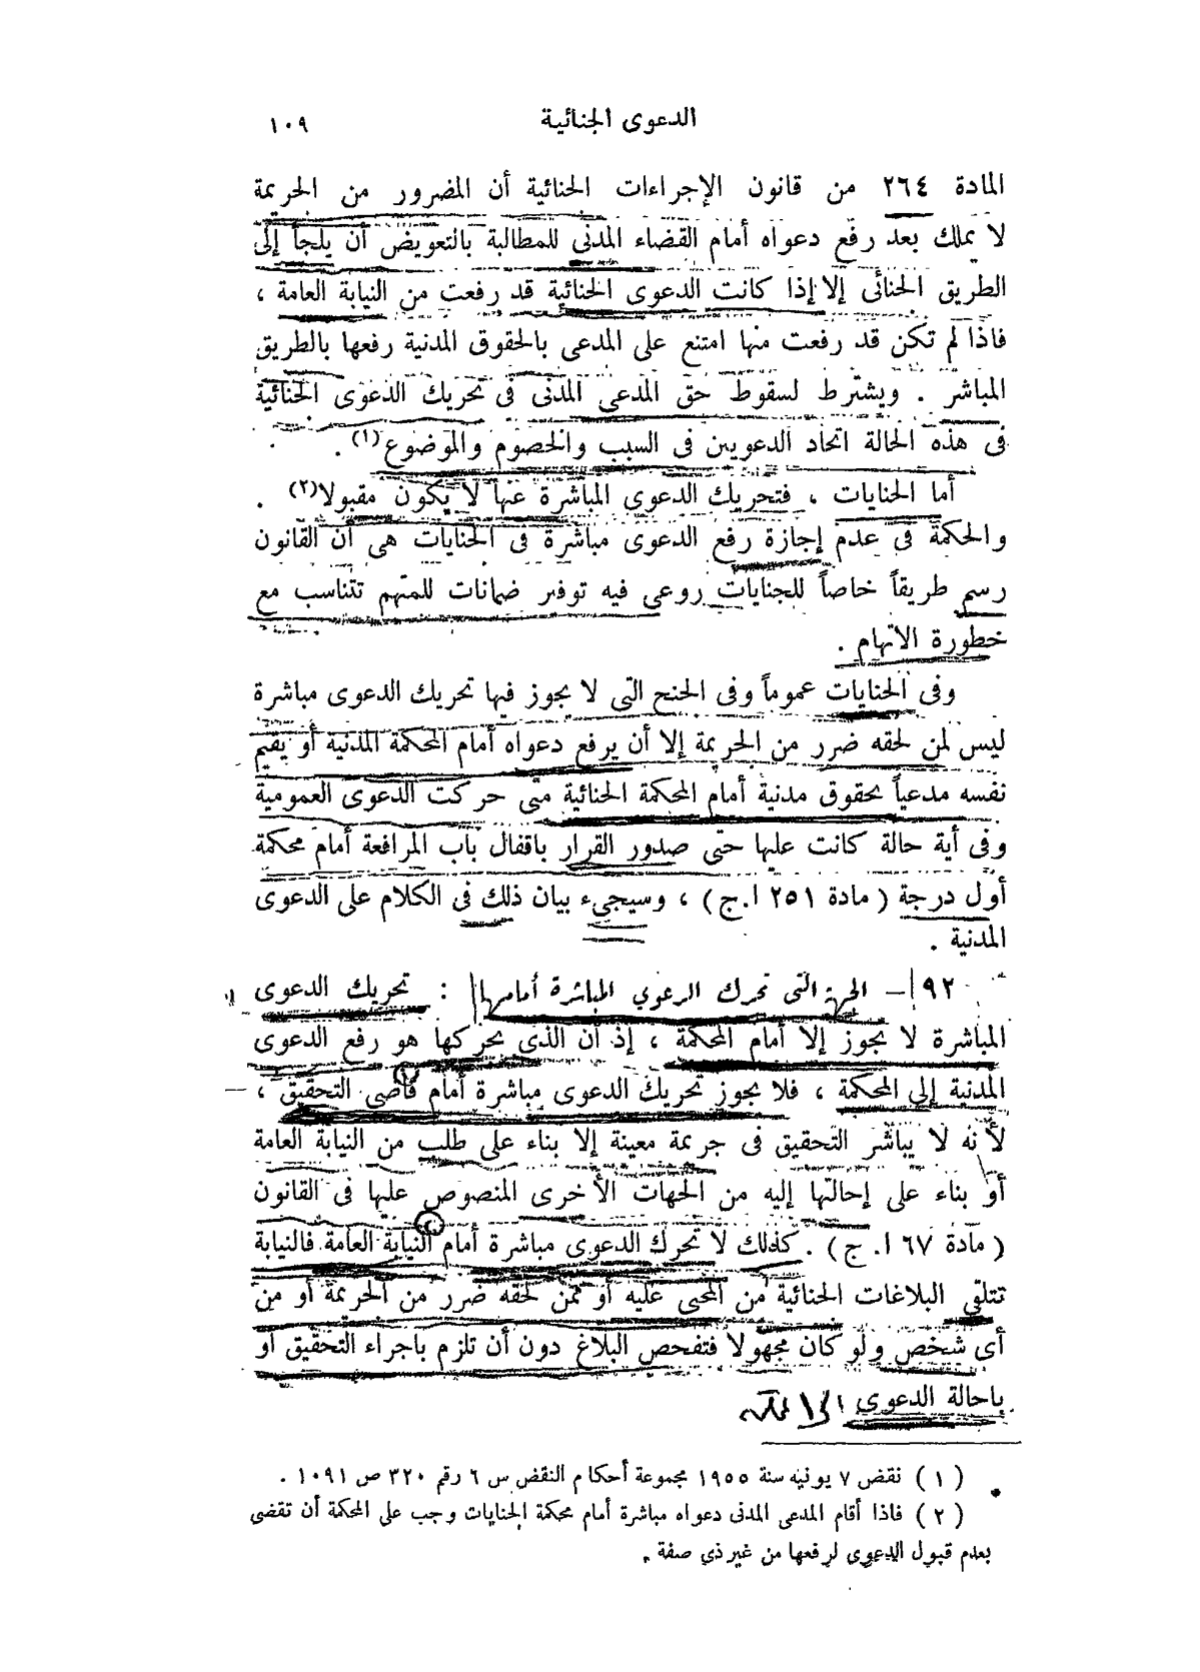 الدعوى الجنائية ١٠٩
المادة ٢٦٤ من قانون الإجراءات الجنائية أن المضرور من الجريمة
لا يملك بعد رفع دعواه أمام القضاء المدنى للمطالبة بالتعويض أن يلجأ إلى
الطريق الجنائى إلا إذا كانت الدعوى الجنائية قد رفعت من النيابة العامة ،
فاذا لم تكن قد رفعت منها امتنع على المدعى بالحقوق المدنية رفعها بالطريق
المباشر . ويشترط لسقوط حق المدعى المدنى فى تحريك الدعوى الجنائية
فى هذه الحالة اتحاد الدعويين فى السبب والخصوم والموضوع (١) .
أما الجنايات ، فتحريك الدعوى المباشرة عنها لا يكون مقبولا (٢) .
والحكمة فى عدم إجازة رفع الدعوى مباشرة فى الجنايات هى أن القانون
رسم طريقاً خاصاً للجنايات روعى فيه توفير ضمانات للمتهم تتناسب مع
خطورة الاتهام .
وفى الجنايات عموماً وفى الجنح التى لا يجوز فيها تحريك الدعوى مباشرة
ليس لمن لحقه ضرر من الجريمة إلا أن يرفع دعواه أمام المحكمة المدنية أو يقيم
نفسه مدعياً بحقوق مدنية أمام المحكمة الجنائية متى حركت الدعوى العمومية
وفى أية حالة كانت عليها حتى صدور القرار باقفال باب المرافعة أمام محكمة
أول درجة ( مادة ٢٥١ ا.ج ) ، وسيجىء بيان ذلك فى الكلام على الدعوى
المدنية .
٩٢ – الجهة التى تحرك الدعوى المباشرة أمامها : تحريك الدعوى
المباشرة لا يجوز إلا أمام المحكمة ، إذ أن الذى يحركها هو رفع الدعوى
المدنية إلى المحكمة ، فلا يجوز تحريك الدعوى مباشرة أمام قاضى التحقيق ،
لأنه لا يباشر التحقيق فى جريمة معينة إلا بناء على طلب من النيابة العامة
أو بناء على إحالتها إليه من الجهات الأخرى المنصوص عليها فى القانون
( مادة ٦٧ ا. ج ) . كذلك لا تحرك الدعوى مباشرة أمام النيابة العامة فالنيابة
تتلقى البلاغات الجنائية من المجنى عليه أو ممن لحقه ضرر من الجريمة أو من
أى شخص ولو كان مجهولا فتفحص البلاغ دون أن تلزم باجراء التحقيق أو
باحالة الدعوى
( ١ ) نقض ٧ يونيه سنة ١٩٥٥ مجموعة أحكام النقض س ٦ رقم ٣٢٠ ص ١٠٩١ .
( ٢ ) فاذا أقام المدعى المدنى دعواه مباشرة أمام محكمة الجنايات وجب على المحكمة أن تقضى
بعدم قبول الدعوى لرفعها من غير ذى صفة .